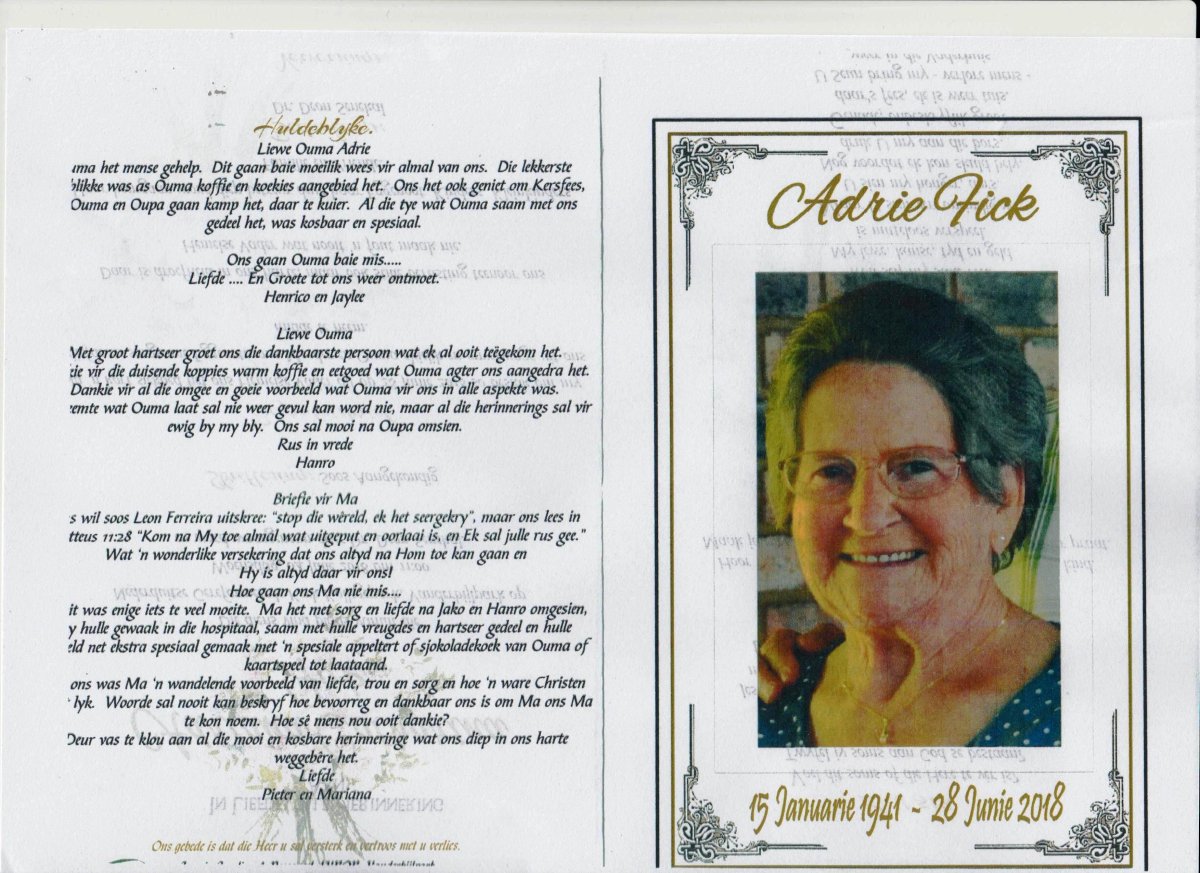 Huldeblyke.
Liewe Ouma Adrie
uma het mense gehelp. Dit gaan baie moeilik wees vir almal van ons. Die lekkerste
likke was as Ouma koffie en koekies aangebied het. Ons het ook geniet om Kersfees,
Ouma en Oupa gaan kamp het, daar te kuier. Al die tye wat Ouma saam met ons
gedeel het, was kosbaar en spesiaal.
Ons gaan Ouma baie mis.....
Liefde .... En Groete tot ons weer ontmoet.
Henrico en Jaylee
Liewe Ouma
Met groot hartseer groet ons die dankbaarste persoon wat ek al ooit teëgekom het.
ie vir die duisende koppies warm koffie en eetgoed wat Ouma agter ons aangedra het.
Dankie vir al die omgee en goeie voorbeeld wat Ouma vir ons in alle aspekte was.
emte wat Ouma laat sal nie weer gevul kan word nie, maar al die herinnerings sal vir
ewig by my bly. Ons sal mooi na Oupa omsien.
Rus in vrede
Hanro
Briefie vir Ma
s wil soos Leon Ferreira uitskree: “stop die wêreld, ek het seergekry”, maar ons lees in
tteus 11:28 “Kom na My toe almal wat uitgeput en oorlaai is, en Ek sal julle rus gee.”
Wat 'n wonderlike versekering dat ons altyd na Hom toe kan gaan en
Hy is altyd daar vir ons!
Hoe gaan ons Ma nie mis....
it was enige iets te veel moeite. Ma het met sorg en liefde na Jako en Hanro omgesien,
y hulle gewaak in die hospitaal, saam met hulle vreugdes en hartseer gedeel en hulle
eld net ekstra spesiaal gemaak met 'n spesiale appeltert of sjokoladekoek van Ouma of
kaartspel tot laataand.
ons was Ma 'n wandelende voorbeeld van liefde, trou en sorg en hoe 'n ware Christen
lyk. Woorde sal nooit kan beskryf hoe bevoorreg en dankbaar ons is om Ma ons Ma
te kon noem. Hoe sê mens nou ooit dankie?
Deur vas te klou aan al die mooi en kosbare herinneringe wat ons diep in ons harte
weggebêre het.
Liefde
Pieter en Mariana
Ons gebede is dat die Heer u sal versterk en vertroos met u verlies.
Adrie Fick
15 Januarie 1941 - 28 Junie 2018